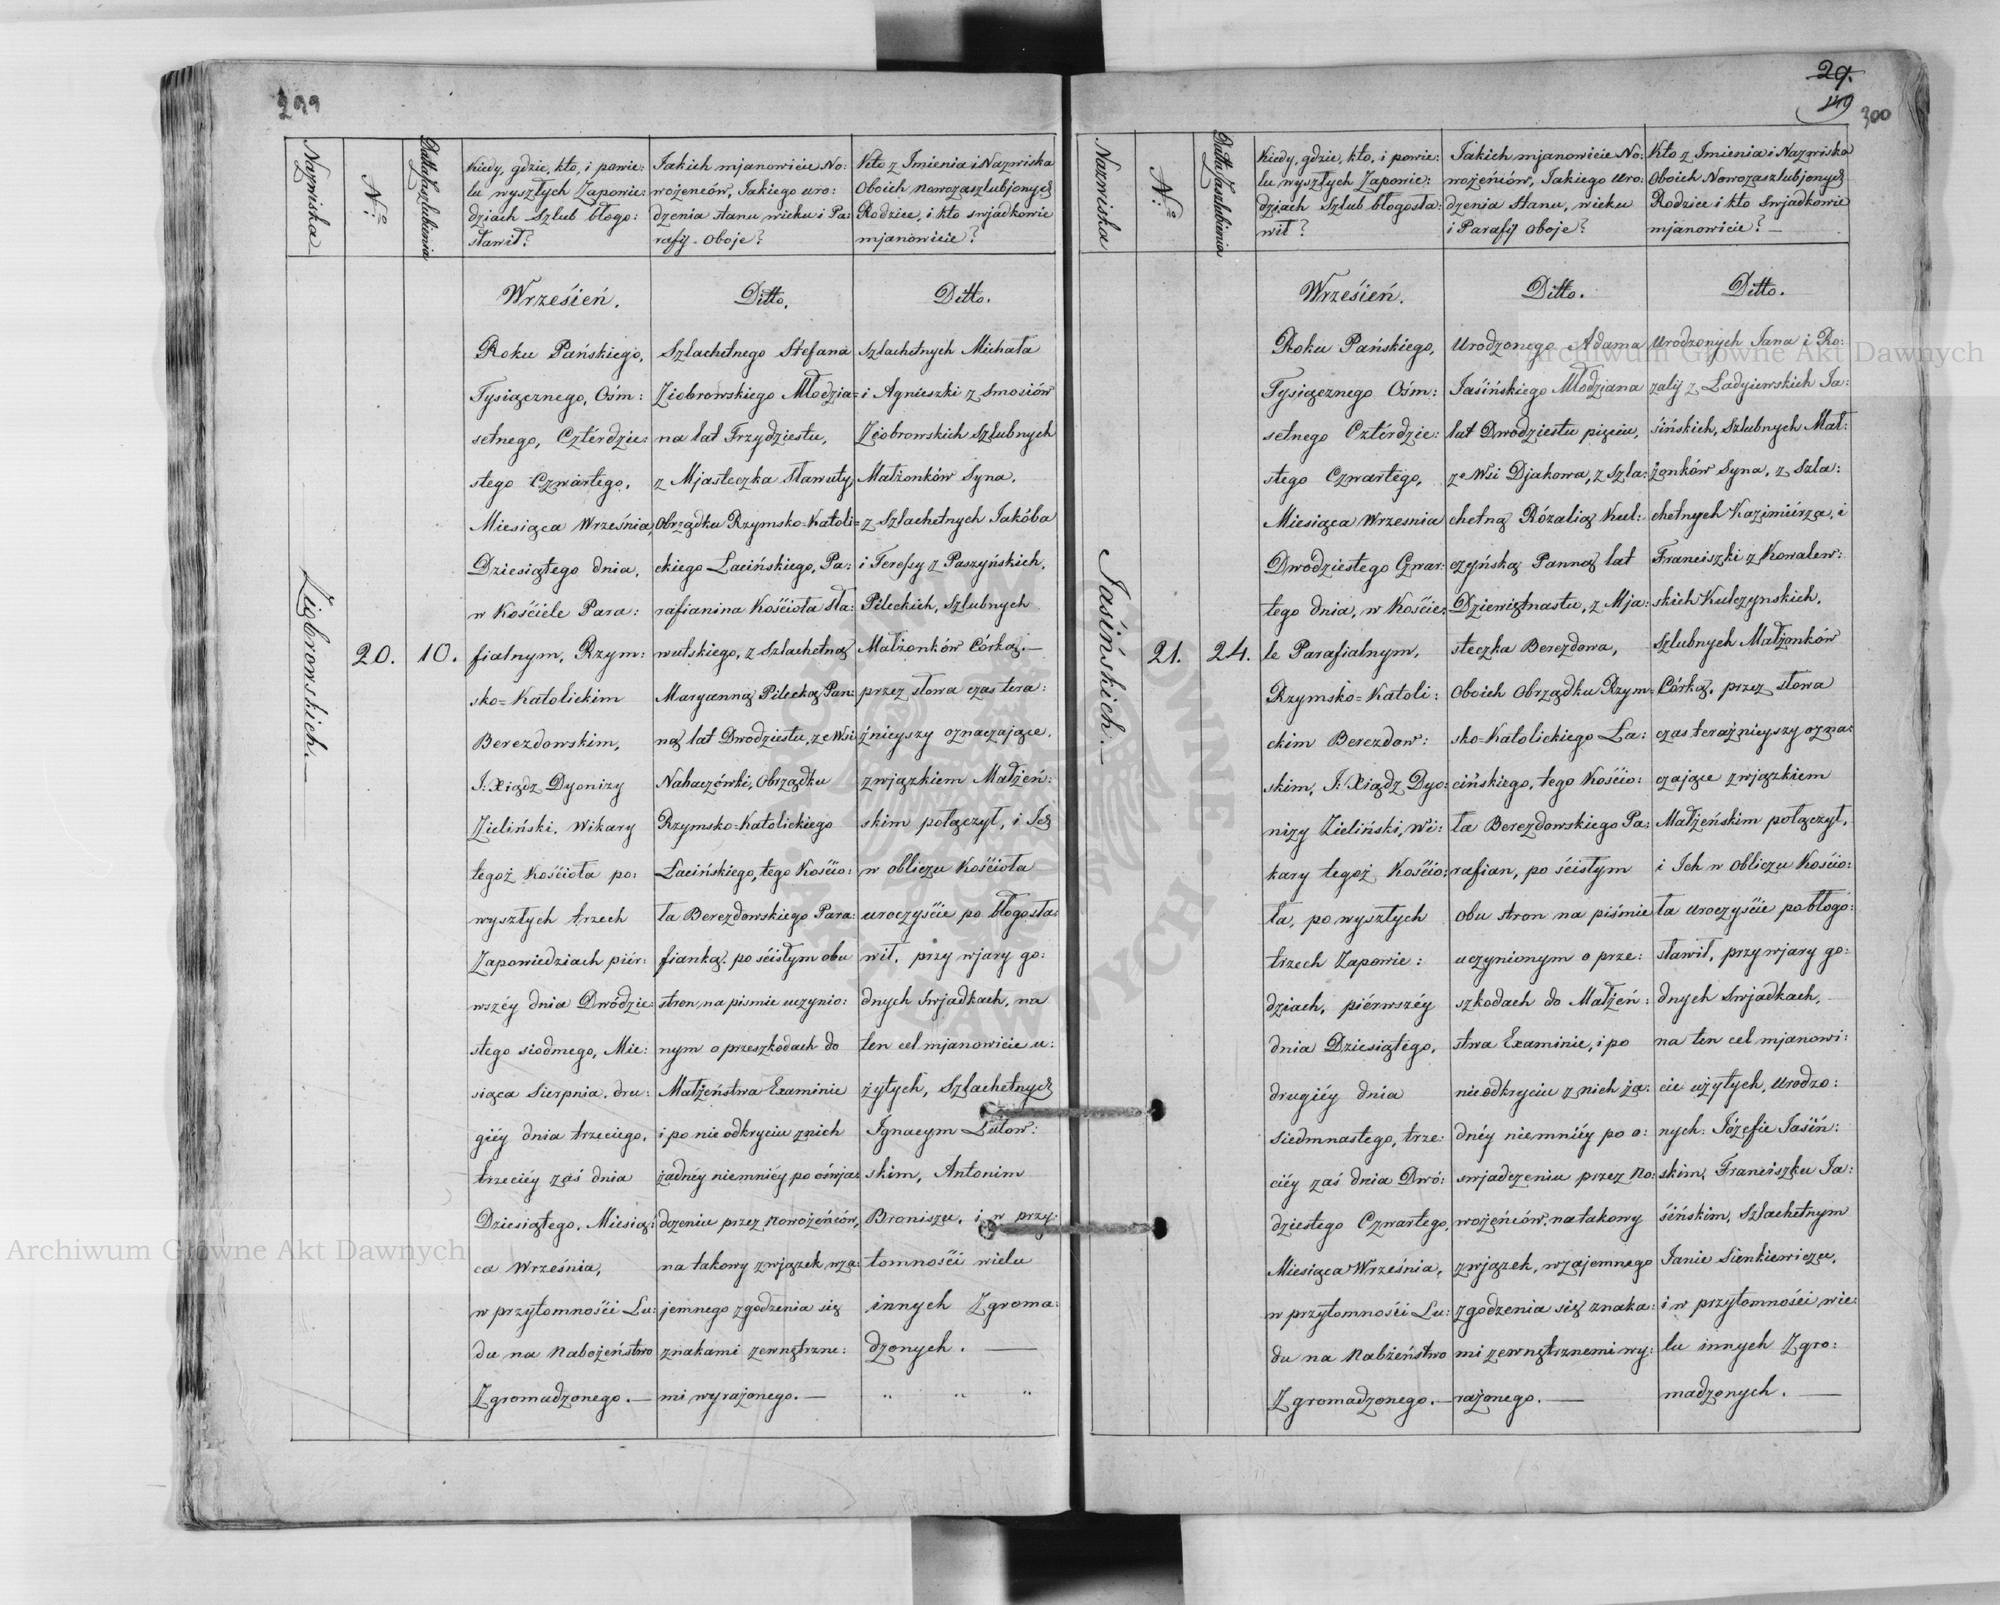 299
Nazwiska
N.o
Datta Zaszlubienia
Kiedy, gdzie, kto, i powie:
lu wyszłych Zapowie:
dziach Szlub błogo:
sławił?
Jakich mjanowicie No:
wożeńców, Jakiego uro:
dzenia stanu wieku i Pa:
rafij - oboje?
Kto z Imienia i Nazwiska
Oboich nowozaszlubjonych
Rodzice, i kto swjadkowie
mjanowicie?
Wrześień.
Roku Pańskiego,
Tysiącznego, Ośm:
setnego, Cztérdzie:
stego Czwartego,
Miesiąca Września,
Dziesiątego dnia,
w Kościele Para:
fialnym, Rzym:
sko=Katolickim
Berezdowskim,
J: Xiądz Dyonizy
Zieliński, Wikary
tegoż Kościoła po:
wyszłych trzech
Zapowiedziach piér:
wszéy dnia Dwódzie:
stego siodmego, Mie:
siąca Sierpnia, dru:
giéy dnia trzeciego,
trzeciéy zaś dnia
Dziesiątego, Miesią:
ca Września,
w przytomnośći Lu:
du na Nabożeństwo
Zgromadzonego. —
Ditto.
Szlachetnego Stefana
Ziobrowskiego Młodzia=
na lat Trzydziestu,
z Mjasteczka Sławuty,
Obrządku Rzymsko=Katoli=
ckiego Łacińskiego, Pa:
rafianina Kościoła Sła:
wutskiego, z Szlachetną
Maryanną Pilecką Pan:
ną lat Dwodziestu, ze Wsi
Nahaczówki, Obrządku
Rzymsko-Katolickiego
Łacińskiego, tego Kośćio:
ła Berezdowskiego Para:
fianką, po śćisłym obu
stron, na pismie uczynio:
nym o przeszkodach do
Małżeństwa Examinie
i po nie odkryciu z nich
żadnéy niemniéy po ośwja:
dczeniu przez Nowożeńców,
na takowy zwjązek, wza:
jemnego zgodzenia się
znakami zewnętrzne:
mi wyrażonego. —
Ditto.
Szlachetnych Michała
i Agnieszki z Smosiów
Ziobrowskich Szlubnych
Małżonków Syna,
z Szlachetnych Jakóba
i Teressy z Paszyńskich,
Pileckich, Szlubnych
Małżonków Córką. —
przez słowa czas tera:
źnieyszy oznaczające,
zwjązkiem Małżeń:
skim połączył, i Ich
w obliczu Kościoła
uroczyście po błogosła:
wił, przy wjary go:
dnych Swjadkach, na
ten cel mjanowicie u:
żytych, Szlachetnych
Ignacym Lutow:
skim, Antonim
Broniszu, i w przy:
tomnośći wielu
innych Zgroma:
dzonych. —
" " "
Ziobrowskich. —
20.
10.
29.
149
300
Nazwiska
N.o
Datta Zaszlubienia
Kiedy, gdzie, kto, i powie:
lu wyszłych Zapowie:
dziach Szlub błogosła:
wił?
Jakich mjanowicie No:
wożeńców, Jakiego uro:
dzenia stanu, wieku
i Parafij oboje?
Kto z Imienia i Nazwiska
Oboich Nowozaszlubjonych
Rodzice i kto Swjadkowie
mjanowicie? —
Wrześień.
Roku Pańskiego,
Tysiącznego Ośm:
setnego Cztérdzie:
stego Czwartego,
Miesiąca Wrzesnia
Dwodziestego Czwar:
tego dnia, w Kośćie:
le Parafialnym,
Rzymsko=Katoli:
ckim Berezdow:
skim, J: Xiądz Dyo:
nizy Zieliński, Wi:
kary tegoż Kośćio:
ła, po wyszłych
trzech Zapowie:
dziach, piérwszéy
dnia Dziesiątego,
drugiéy dnia
Siedmnastego, trze:
ciéy zaś dnia Dwó:
dziestego Czwartego,
Miesiąca Września,
w przytomnośći Lu:
du na Nabżeństwo
Zgromadzonego. —
Ditto.
Urodzonego Adama
Jaśińskiego Młodziana
lat Dwodziestu pięciu,
ze Wsi Djakowa, z Szla:
chetną Rózalią Kul:
czyńską Panną lat
Dziewiętnastu, z Mja:
steczka Berezdowa,
Oboich Obrządku Rzym=
sko-Katolickiego Ła:
cińskiego, tego Kośćio:
ła Berezdowskiego Pa:
rafian, po śćisłym
obu stron na piśmie
uczynionym o prze:
szkodach do Małżeń:
stwa Examinie, i po
nieodkryciu z nich ża:
dnéy niemniéy po o:
swjadczeniu przez No:
wożeńców, na takowy
zwjązek, wzajemnego
zgodzenia się znaka:
mi zewnętrznemi wy:
rażonego. —
Ditto.
Urodzonych Jana i Ro:
zalij z Ładyiewskich Ja:
śińskich, Szlubnych Mał:
żonków Syna, z Szla:
chetnych Kazimiérza, i
Franciszki z Kowalew:
skich Kulczynskich,
Szlubnych Małżonków
Córką, przez słowa
czas teraźnieyszy ozna:
czające zwjązkiem
Małżeńskim połączył,
i Ich w Obliczu Kośćio:
ła Uroczyśćie pobłogo:
sławił, przy wjary go:
dnych Swjadkach,
na ten cel mjanowi:
cie użytych, Urodzo:
nych: Józefie Jaśiń:
skim, Franciszku Ja:
śińskim, Szlachetnym
Janie Sienkiewiczu,
i w przytomnośći wie:
lu innych Zgro:
madzonych. —
Jaśińskich. —
21.
24.
Archiwum Główne Akt Dawnych
Archiwum Główne Akt Dawnych
ARCHIWUM GŁÓWNE AKT DAWNYCH